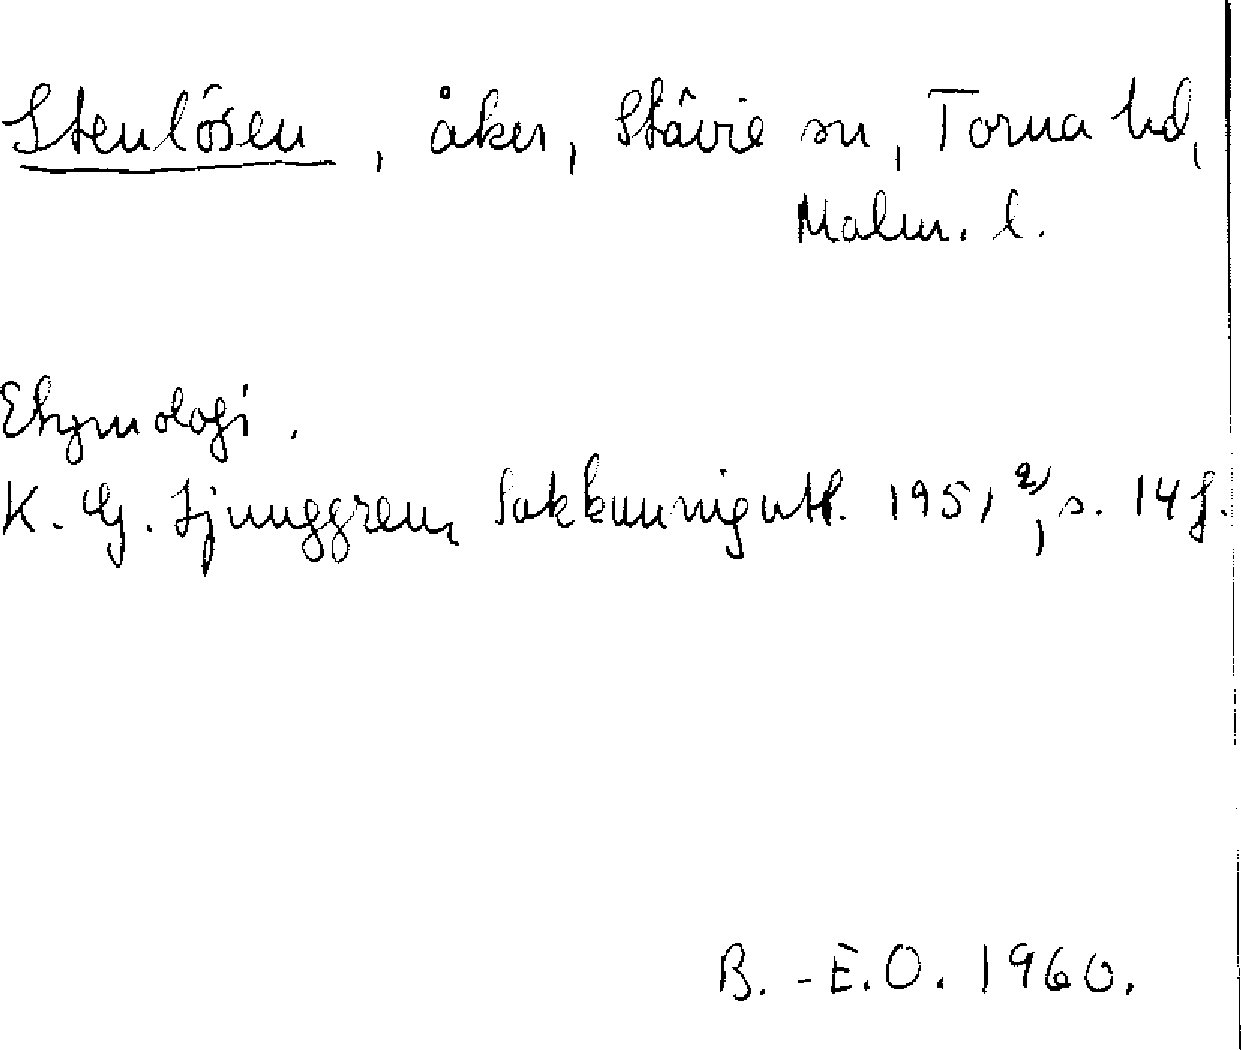 Stenlösen, åker, Stävie sn, Torna hd,
Malm. l.
Etymologi.
K. G. Ljunggren, Sakkunnigutl. 1951 2), s. 14 f.
B.-E.O. 1960.